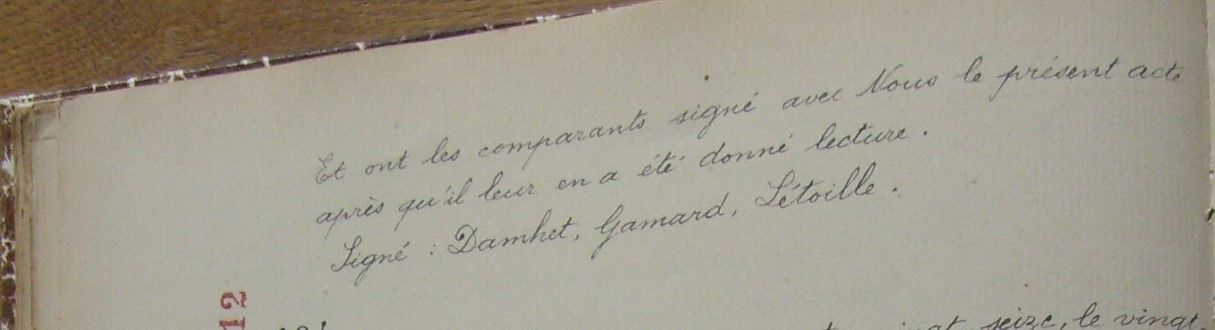 Et ont les comparants signé avec Nous le présent acte
après qu'il leur en a été donné lecture.
Signé : Damhet, Gamard, Létoille.
12
seize, le vingt